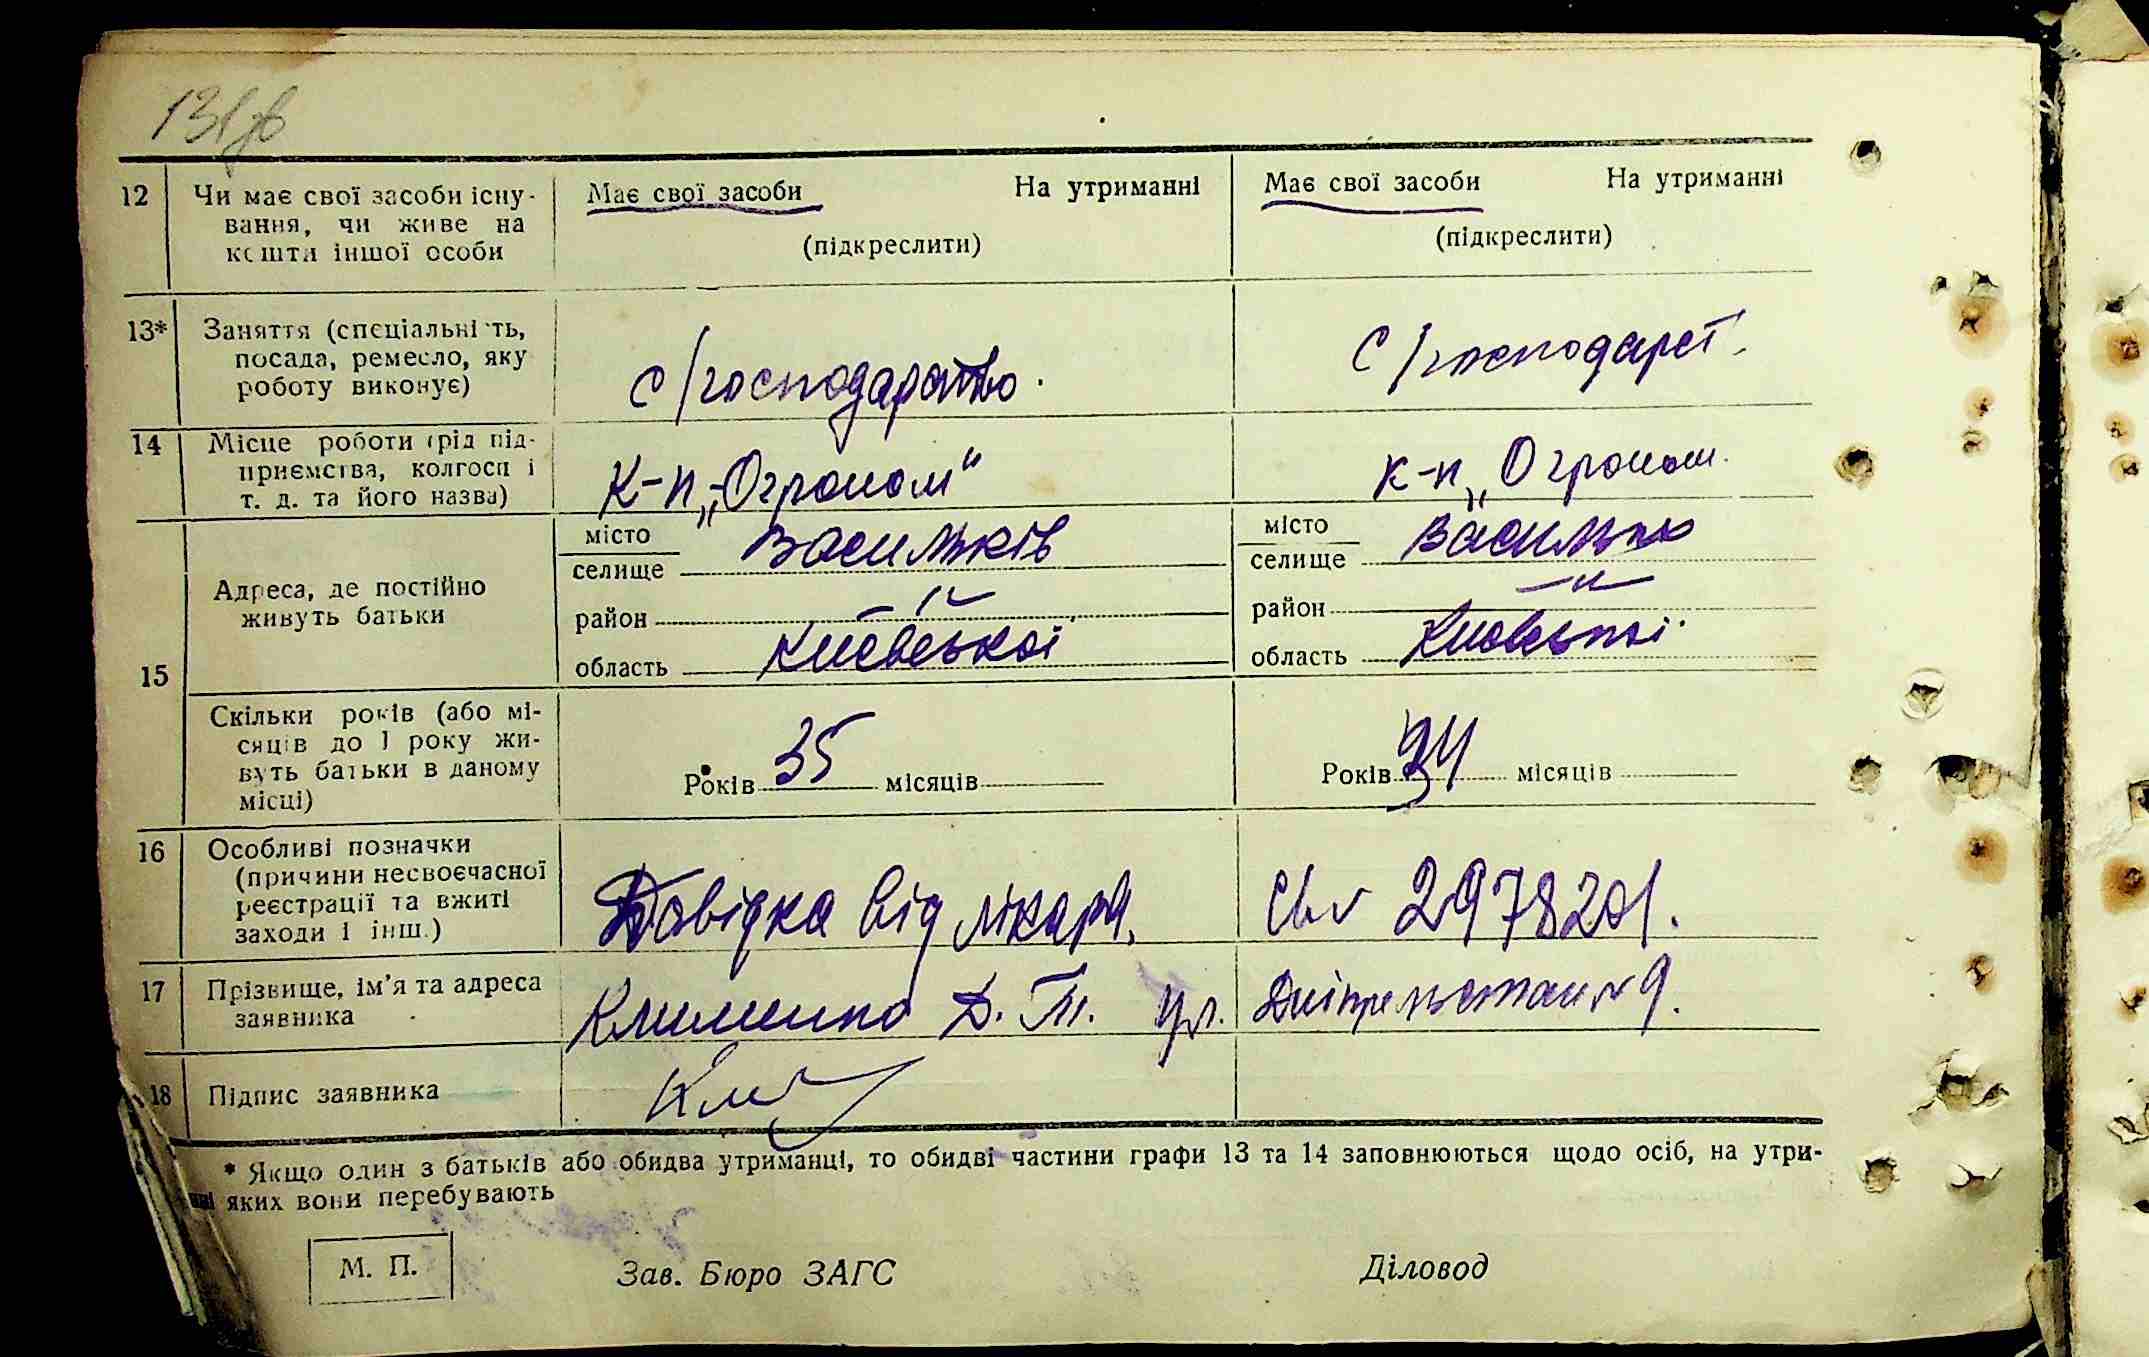 131зв
12 Чи має свої засоби існу- Має свої засоби На утриманні Має свої засоби На утриманні
вання, чи живе на (підкреслити) (підкреслити)
кошти іншої особи
13* Заняття (спеціальність, с/господарство. с/господарст.
посада, ремесло, яку
роботу виконує)
14 Місце роботи (рід під- к-п „Огроном" к-п „Огроном.
приємства, колгосп і
т. д. та його назва)
15 Адреса, де постійно живуть батьки
місто
селище Васильків
район —"—
область Києвської
місто
селище Васильків
район —"—
область Києвської
Скільки років (або мі-
сяців до 1 року жи-
вуть батьки в даному
місці)
Років 35 місяців
Років 34 місяців
16 Особливі позначки
(причини несвоєчасної
реєстрації та вжиті
заходи і інш.)
Довідка від лікаря. 2978201.
17 Прізвище, ім'я та адреса
заявника
Клименко Д. Т. ул. 9.
18 Підпис заявника
* Якщо один з батьків або обидва утриманці, то обидві частини графи 13 та 14 заповнюються щодо осіб, на утри-
нні яких вони перебувають
М. П. Зав. Бюро ЗАГС Діловод